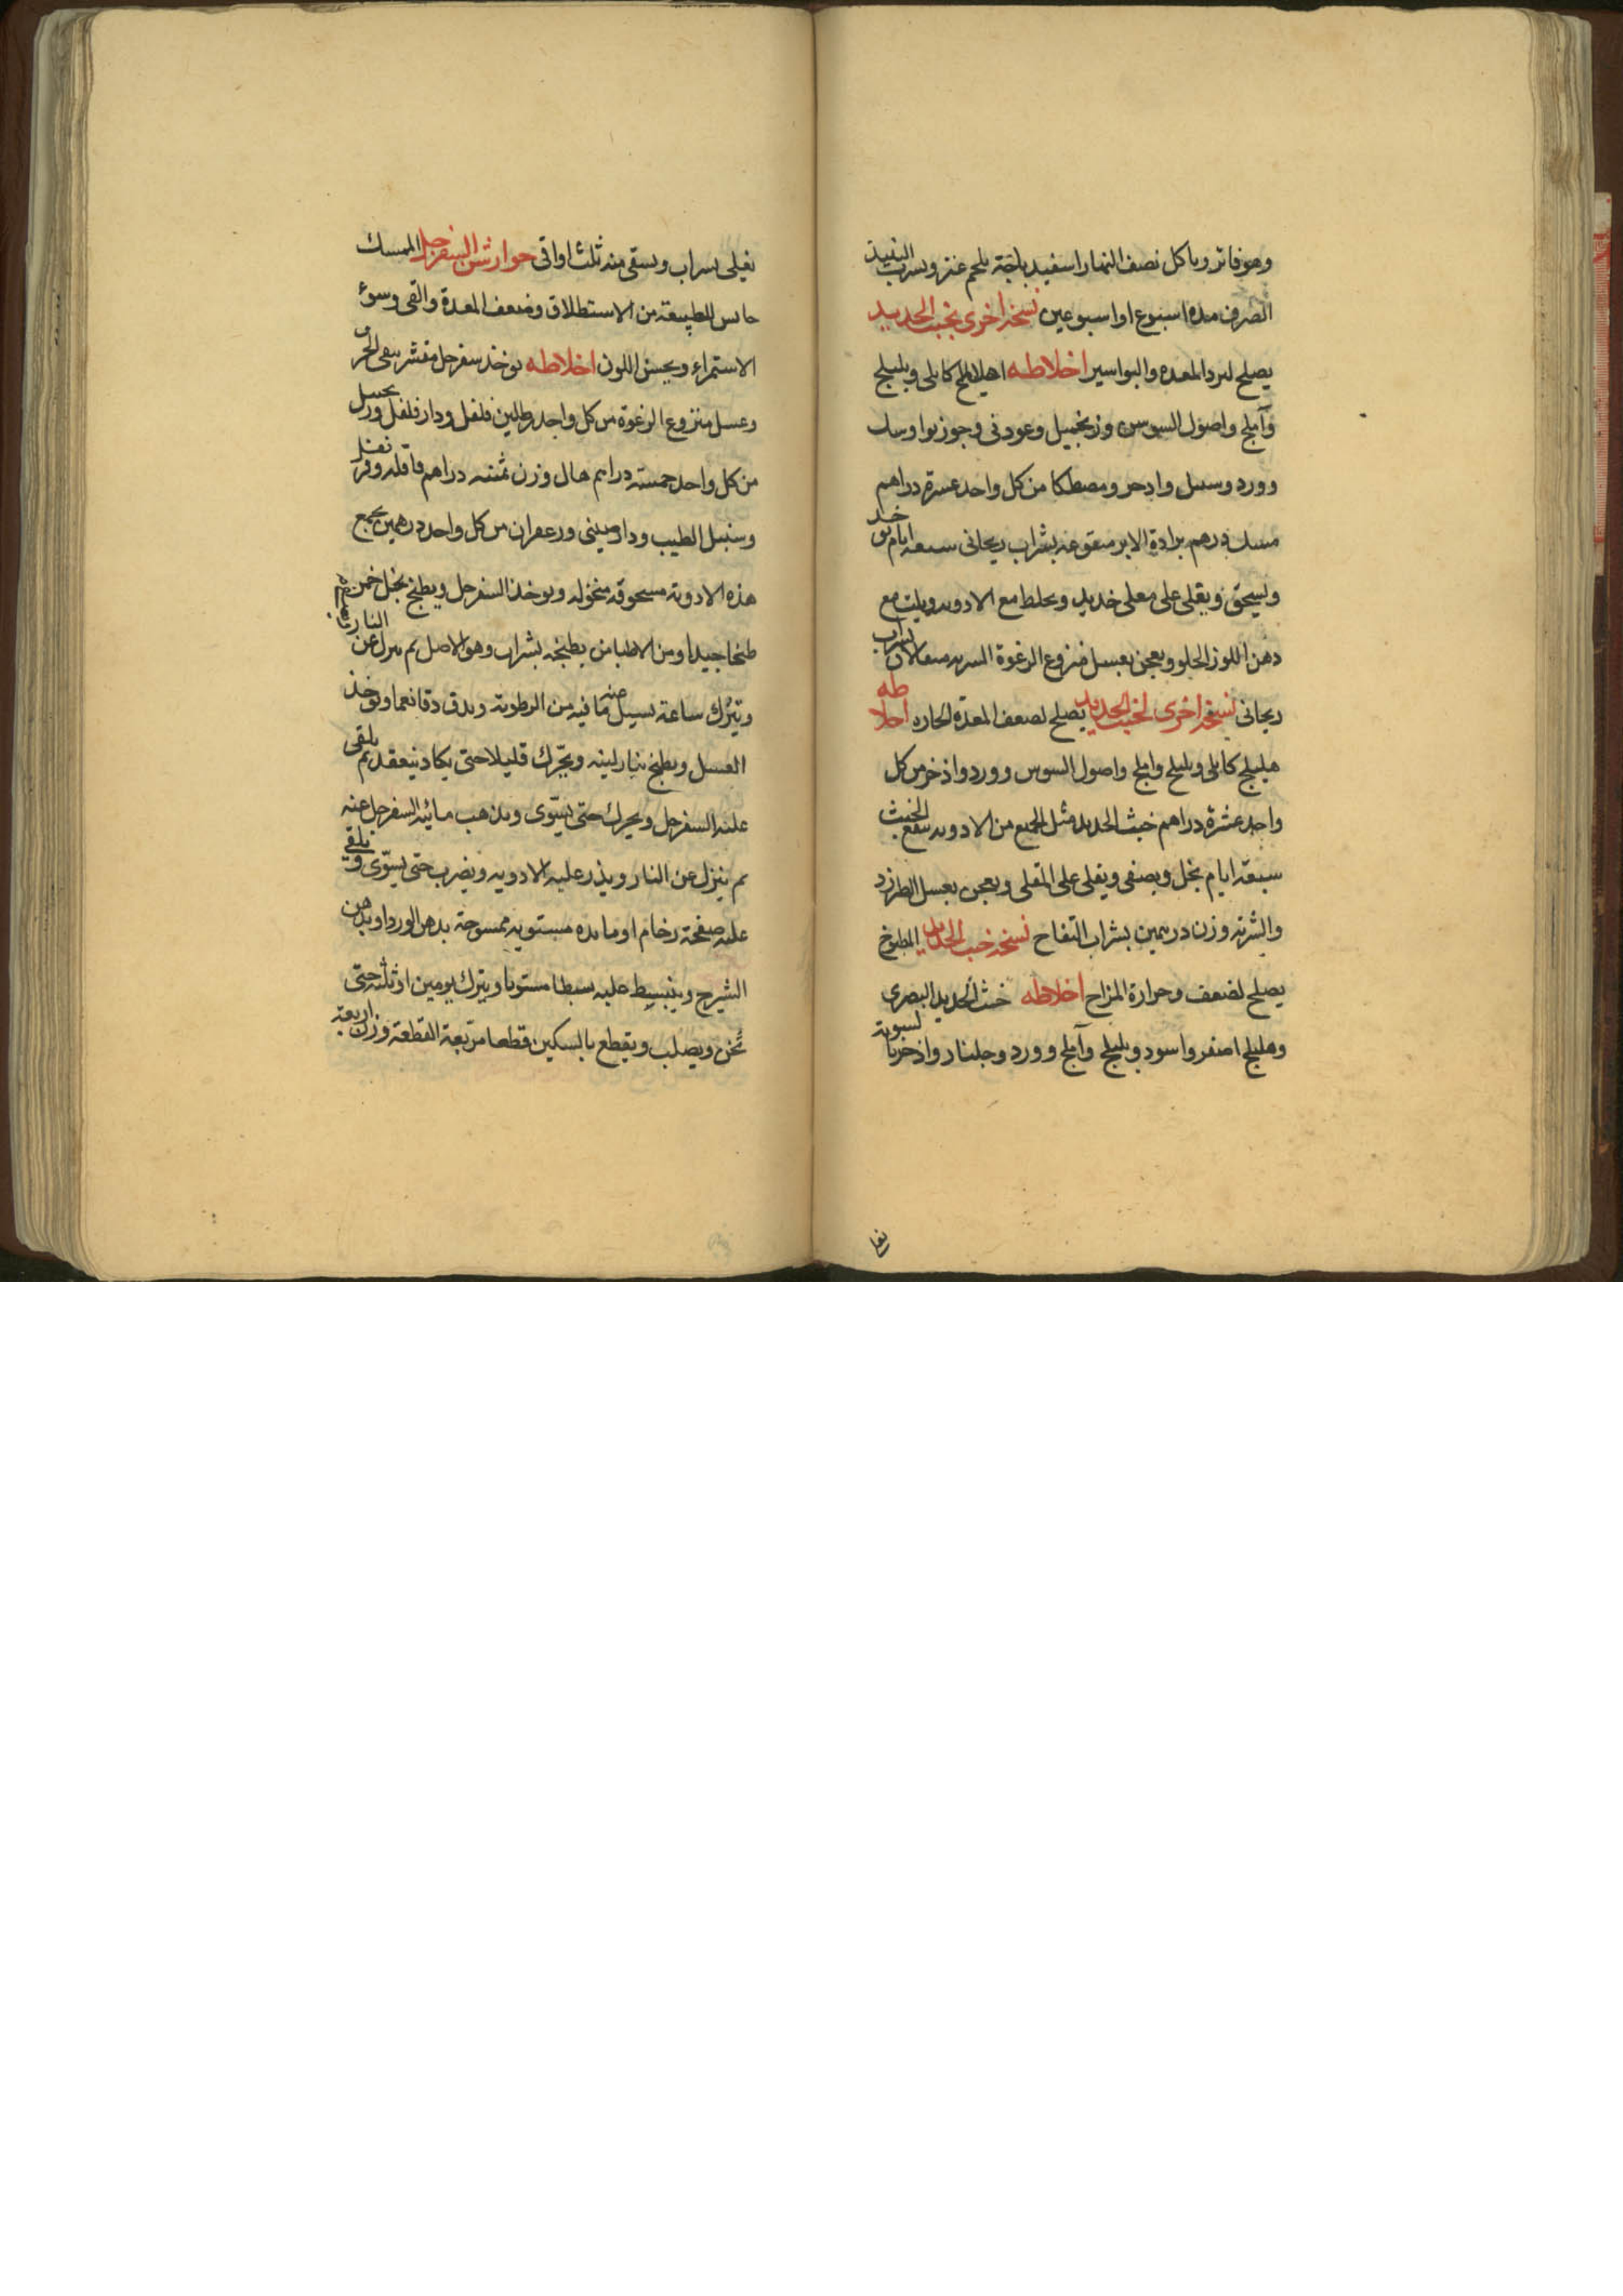 وهو فاتر وياكل نصف النهار اسفيدباجة بلحم عنز ويشرب النبيذ
الصرف مدة اسبوع او اسبوعين نسخة اخرى بخبث الحديد
يصلح لبرد المعده والبواسير اخلاطه اهليلج كابلى وبليلج
وآملج واصول السوسن وزنجبيل وعود نى وجوزبوا وسك
وورد وسنبل واذخر ومصطكا من كل واحد عشرة دراهم
مسك درهم برادة الابر منقوعه بشراب ريحانى سبعه ايام يوخذ
ويسحق ويقلى على مقلى حديد ويخلط مع الادويه ويلت مع
دهن اللوز الحلو ويعجن بعسل منزوع الرغوة الشربه مثقالان بشراب
ريحانى نسخه اخرى لخبث الحديد يصلح لضعف المعدة الحاره اخلاطه
هليلج كابلى وبليلج واملج واصول السوس وورد واذخر من كل
واحد عشرة دراهم خبث الحديد مثل الجميع من الادويه ينقع الخبث
سبعة ايام بخل ويصفى ويقلى على المقلى ويعجن بعسل الطبرزد
والشربة وزن درهمين بشراب التفاح نسخه خبث الحديد المطبوخ
يصلح لضعف وحرارة المزاج اخلاطه خبث الحديد البصرى
وهليلج اصفر واسود وبليلج وآملج وورد وجلنار واذخر بالسوية
يغلى بشراب ويسقى منه ثلث اواقى جوارشن السفرجل الممسك
حابس للطبيعة من الاستطلاق وضعف المعدة والقى وسوء
الاستمراء ويحسن اللون اخلاطه يوخذ سفرجل مقشر
وعسل منزوع الرغوة من كل واحد رطلين فلفل ودار فلفل وزنجبيل
من كل واحد خمسة دراهم هال وزن ثمنيه دراهم قاقله وقرنفل
وسنبل الطيب ودارصينى وزعفران من كل واحد درهمين يجمع
هذه الادوية مسحوقه منخوله ويوخذ السفرجل ويطبخ بخل خمر
طبخا جيدا ومن الاطبا من يطبخه بشراب وهو الاصل ثم ينزل عن النار
ويترك ساعة يسيل منه ما فيه من الرطوبة ويدق دقا نعما ويوخذ
العسل ويطبخ بنار لينه ويحرك قليلا حتى يكاد ينعقد ثم يلقى
عليه السفرجل ويحرك حتى يستوى ويذهب مائية السفرجل عنه
ثم ينزل عن النار ويذر عليه الادويه ويضرب حتى يستوى ويلقى
عليه صفحة رخام او مايده مستويه ممسوحة بدهن الورد او بدهن
الشيرج وينبسط عليه بسطا مستويا ويترك يومين او ثلثة حتى
ثخن ويصلب ويقطع بالسكين قطعا مربعة القطعة وزن اربعة